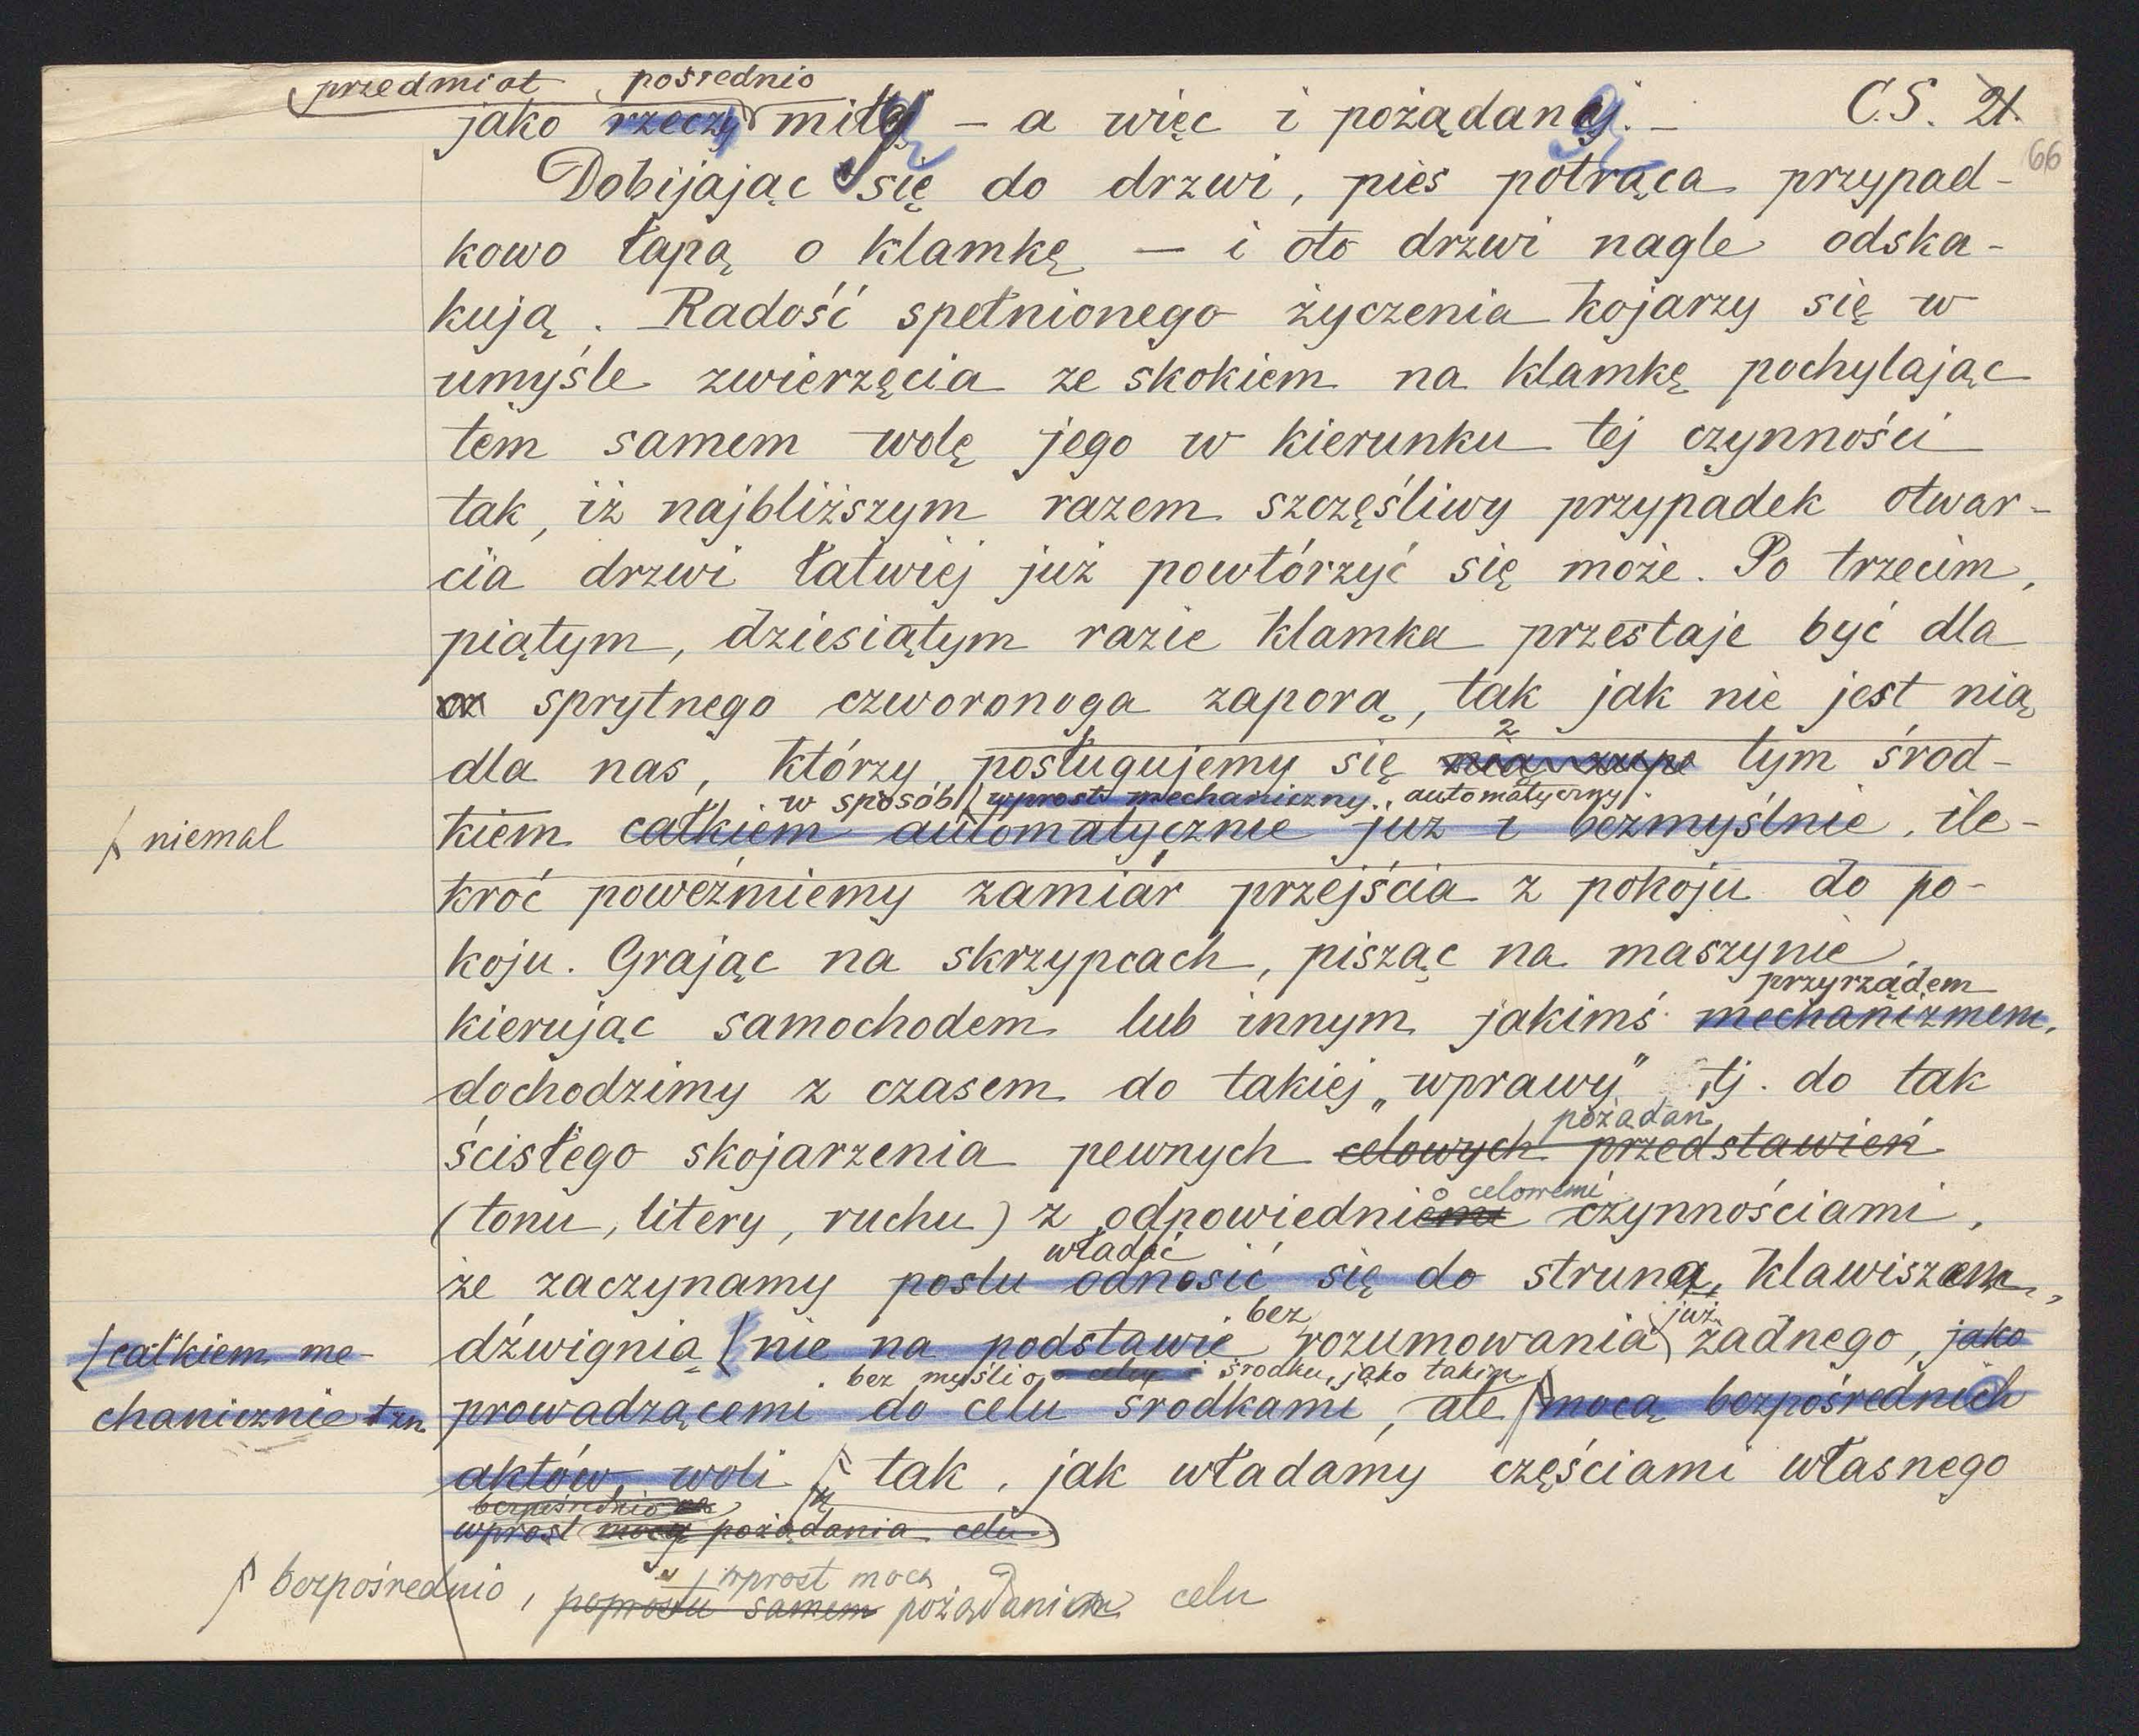 przedmiot pośrednio
jako rzeczy miłą — a więc i pożądaną. — C.S. 21.
66
Dobijając się do drzwi, pies potrąca przypad-
kowo łapą o klamkę — i oto drzwi nagle odska-
kują. Radość spełnionego życzenia kojarzy się w
umyśle zwierzęcia ze skokiem na klamkę pochylając
tem samem wolę jego w kierunku tej czynności
tak, iż najbliższym razem szczęśliwy przypadek otwar-
cia drzwi łatwiej już powtórzyć się może. Po trzecim,
piątym, dziesiątym razie klamka przestaje być dla
sprytnego czworonoga zaporą, tak jak nie jest nią
2
dla nas, którzy posługujemy się nią tym środ-
w sposób wprost mechaniczny, automatyczny
niemal
kiem całkiem automatycznie już i bezmyślnie, ile-
kroć poweźmiemy zamiar przejścia z pokoju do po-
koju. Grając na skrzypcach, pisząc na maszynie,
przyrządem
kierując samochodem lub innym jakimś mechanizmem,
dochodzimy z czasem do takiej „wprawy" tj. do tak
pożądań
ścisłego skojarzenia pewnych celowych przedstawień
celowemi
(tonu, litery, ruchu) z odpowiedniemi czynnościami,
władać
że zaczynamy poslu odnosić się do struną, klawiszem,
bez już
dźwignią (nie na podstawie rozumowania żadnego, jako
(całkiem me-
chanicznie tzn.
bez myśli o celu i środku, jako takim
prowadzącemi do celu środkami, ale mocą bezpośrednich
aktów woli tak, jak władamy częściami własnego
bezpośrednio
wprost mocą pożądania celu
wprost mocą
bezpośrednio, poprostu samem pożądaniem celu